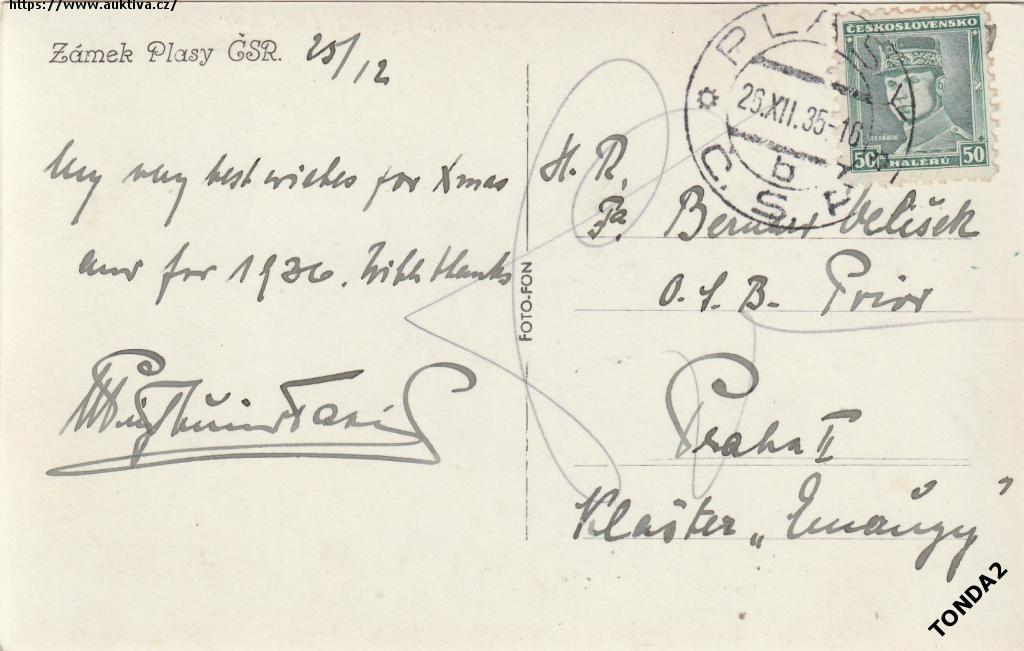 https://www.auktiva.cz/
Zámek Plasy ČSR. 25/12
My very best wishes for Xmas
and for 1936. With thanks
FOTO-FON
PLASY
26.XII.35-16
b
ČSR
ČESKOSLOVENSKO
ŠTEFÁNIK
50 HALÉŘŮ 50
H. R.
Pa. Bernard Velíšek
O. S. B. Prior
Praha II
Klášter „Emauzy"
TONDA2